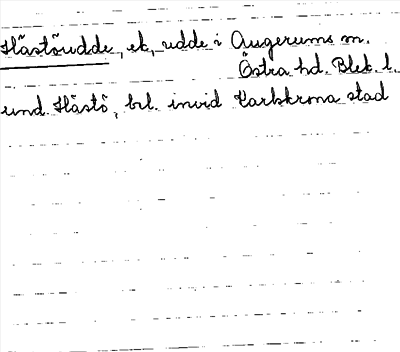 Hästöudde, ek, udde i Augerums sn.
Östra hd. Blek. l.
und. Hästö, bel. invid Karlskrona stad